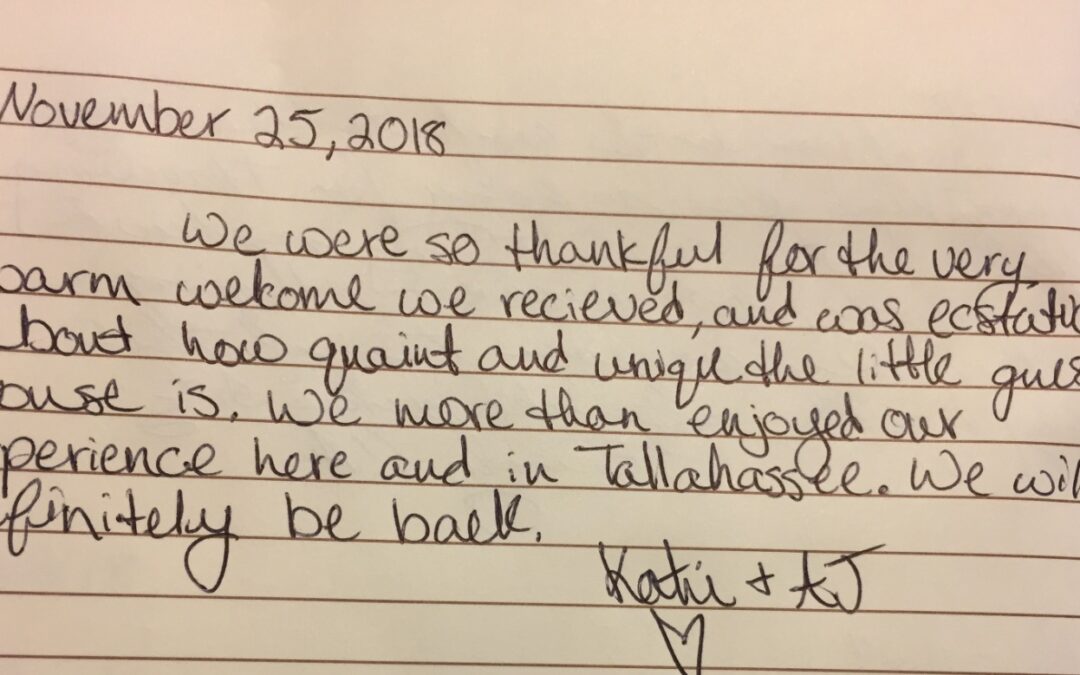 November 25, 2018
We were so thankful for the very
arm welcome we recieved, and was ecstati
bout how quaint and unique the little gues
ouse is. We more than enjoyed our
perience here and in Tallahassee. We wil
finitely be back.
Katie + AJ